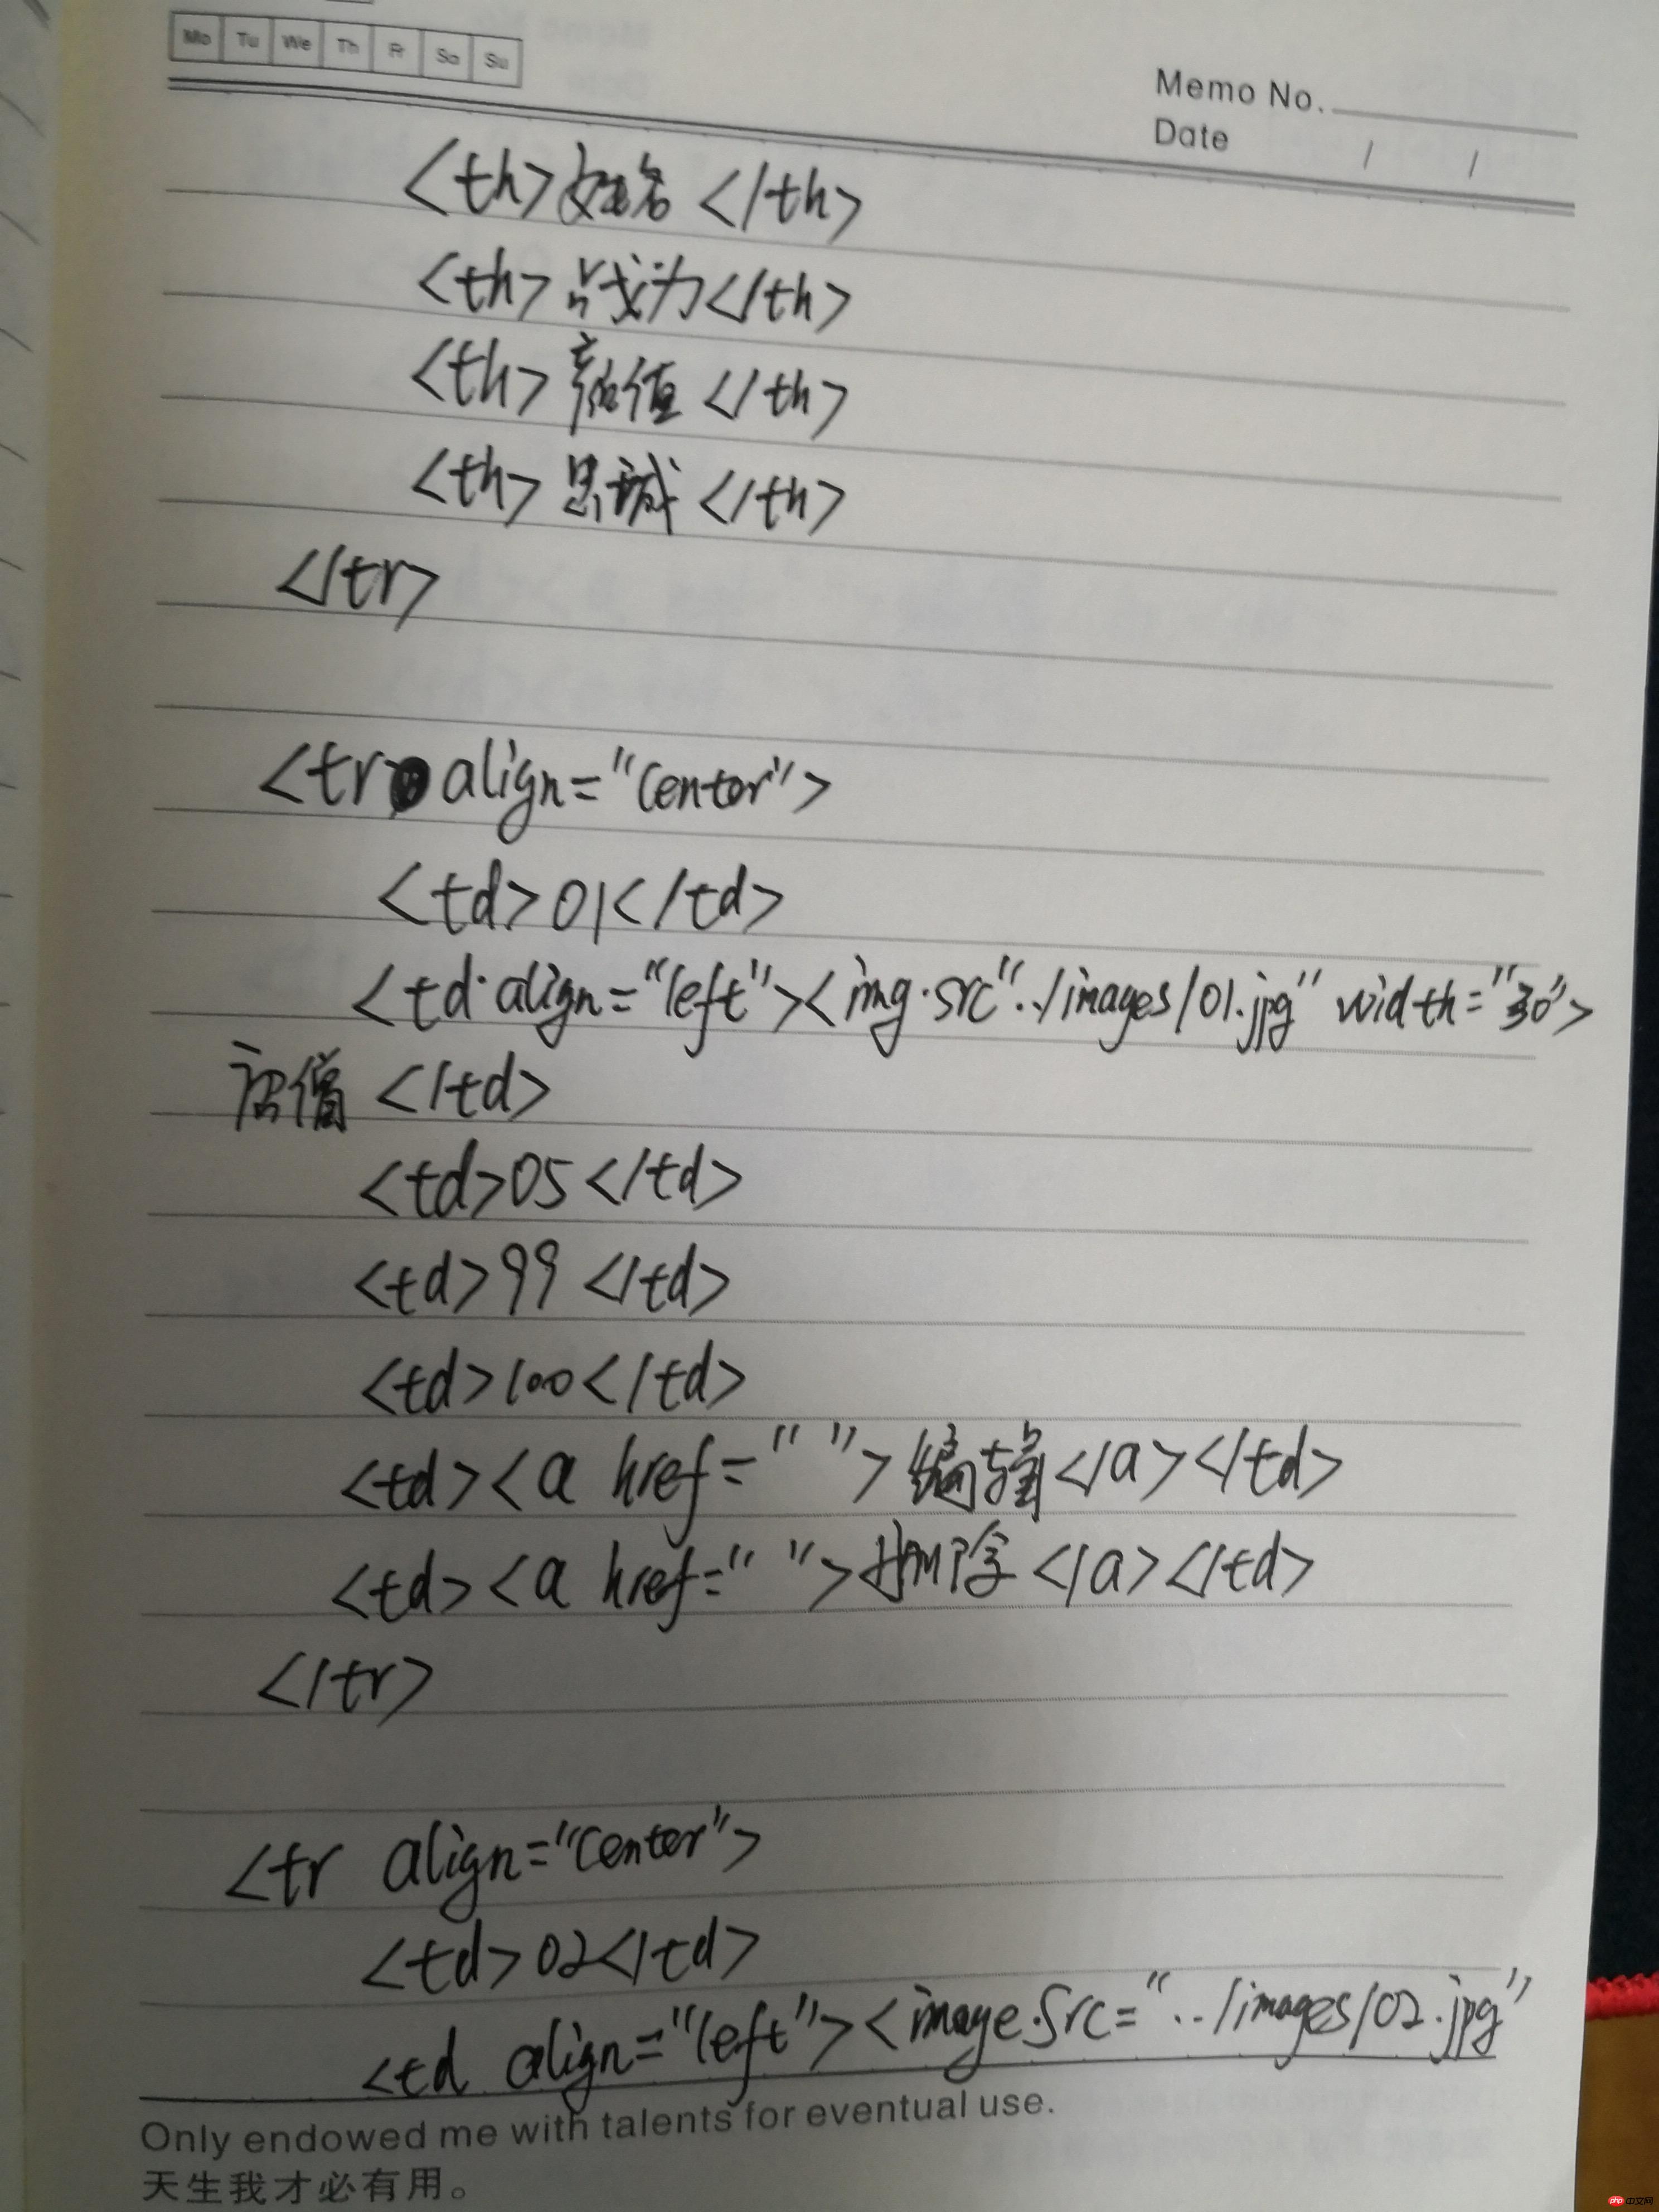 Mo Tu We Th Fr Sa Su
Memo No.
Date / /
<th>姓名</th>
<th>战力</th>
<th>颜值</th>
<th>忠诚</th>
</tr>
<tr align="center">
<td>01</td>
<td align="left"><img src"../images/01.jpg" width="30">
唐僧</td>
<td>05</td>
<td>99</td>
<td>100</td>
<td><a href=" ">编辑</a></td>
<td><a href=" ">删除</a></td>
</tr>
<tr align="center">
<td>02</td>
<td align="left"><image src="../images/02.jpg"
Only endowed me with talents for eventual use.
天生我才必有用。
php 中文网